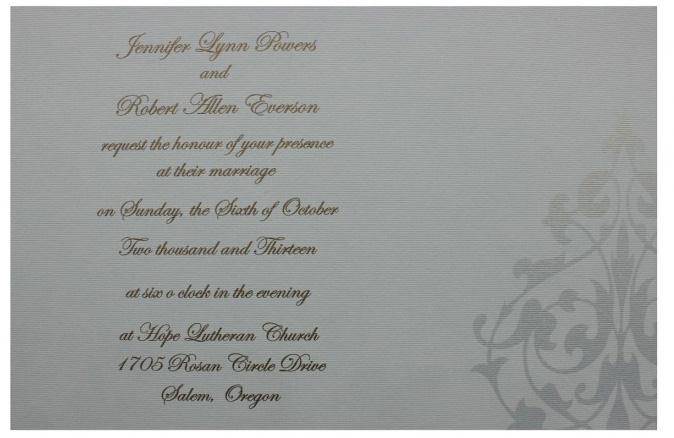 Jennifer Lynn Powers
and
Robert Allen Everson
request the honour of your presence
at their marriage
on Sunday, the Sixth of October
Two thousand and Thirteen
at six o clock in the evening
at Hope Lutheran Church
1705 Rosan Circle Drive
Salem, Oregon